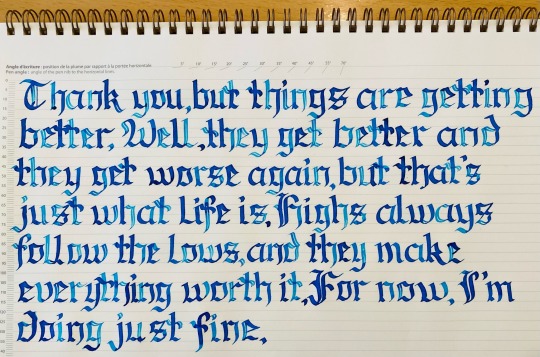 Angle d'écriture : position de la plume par rapport à la portée horizontale
Pen angle : angle of the pen nib to the horizontal lines
Thank you, but things are getting
better. Well, they get better and
they get worse again, but that's
just what life is. Highs always
follow the lows, and they make
everything worth it. For now, I'm
doing just fine.